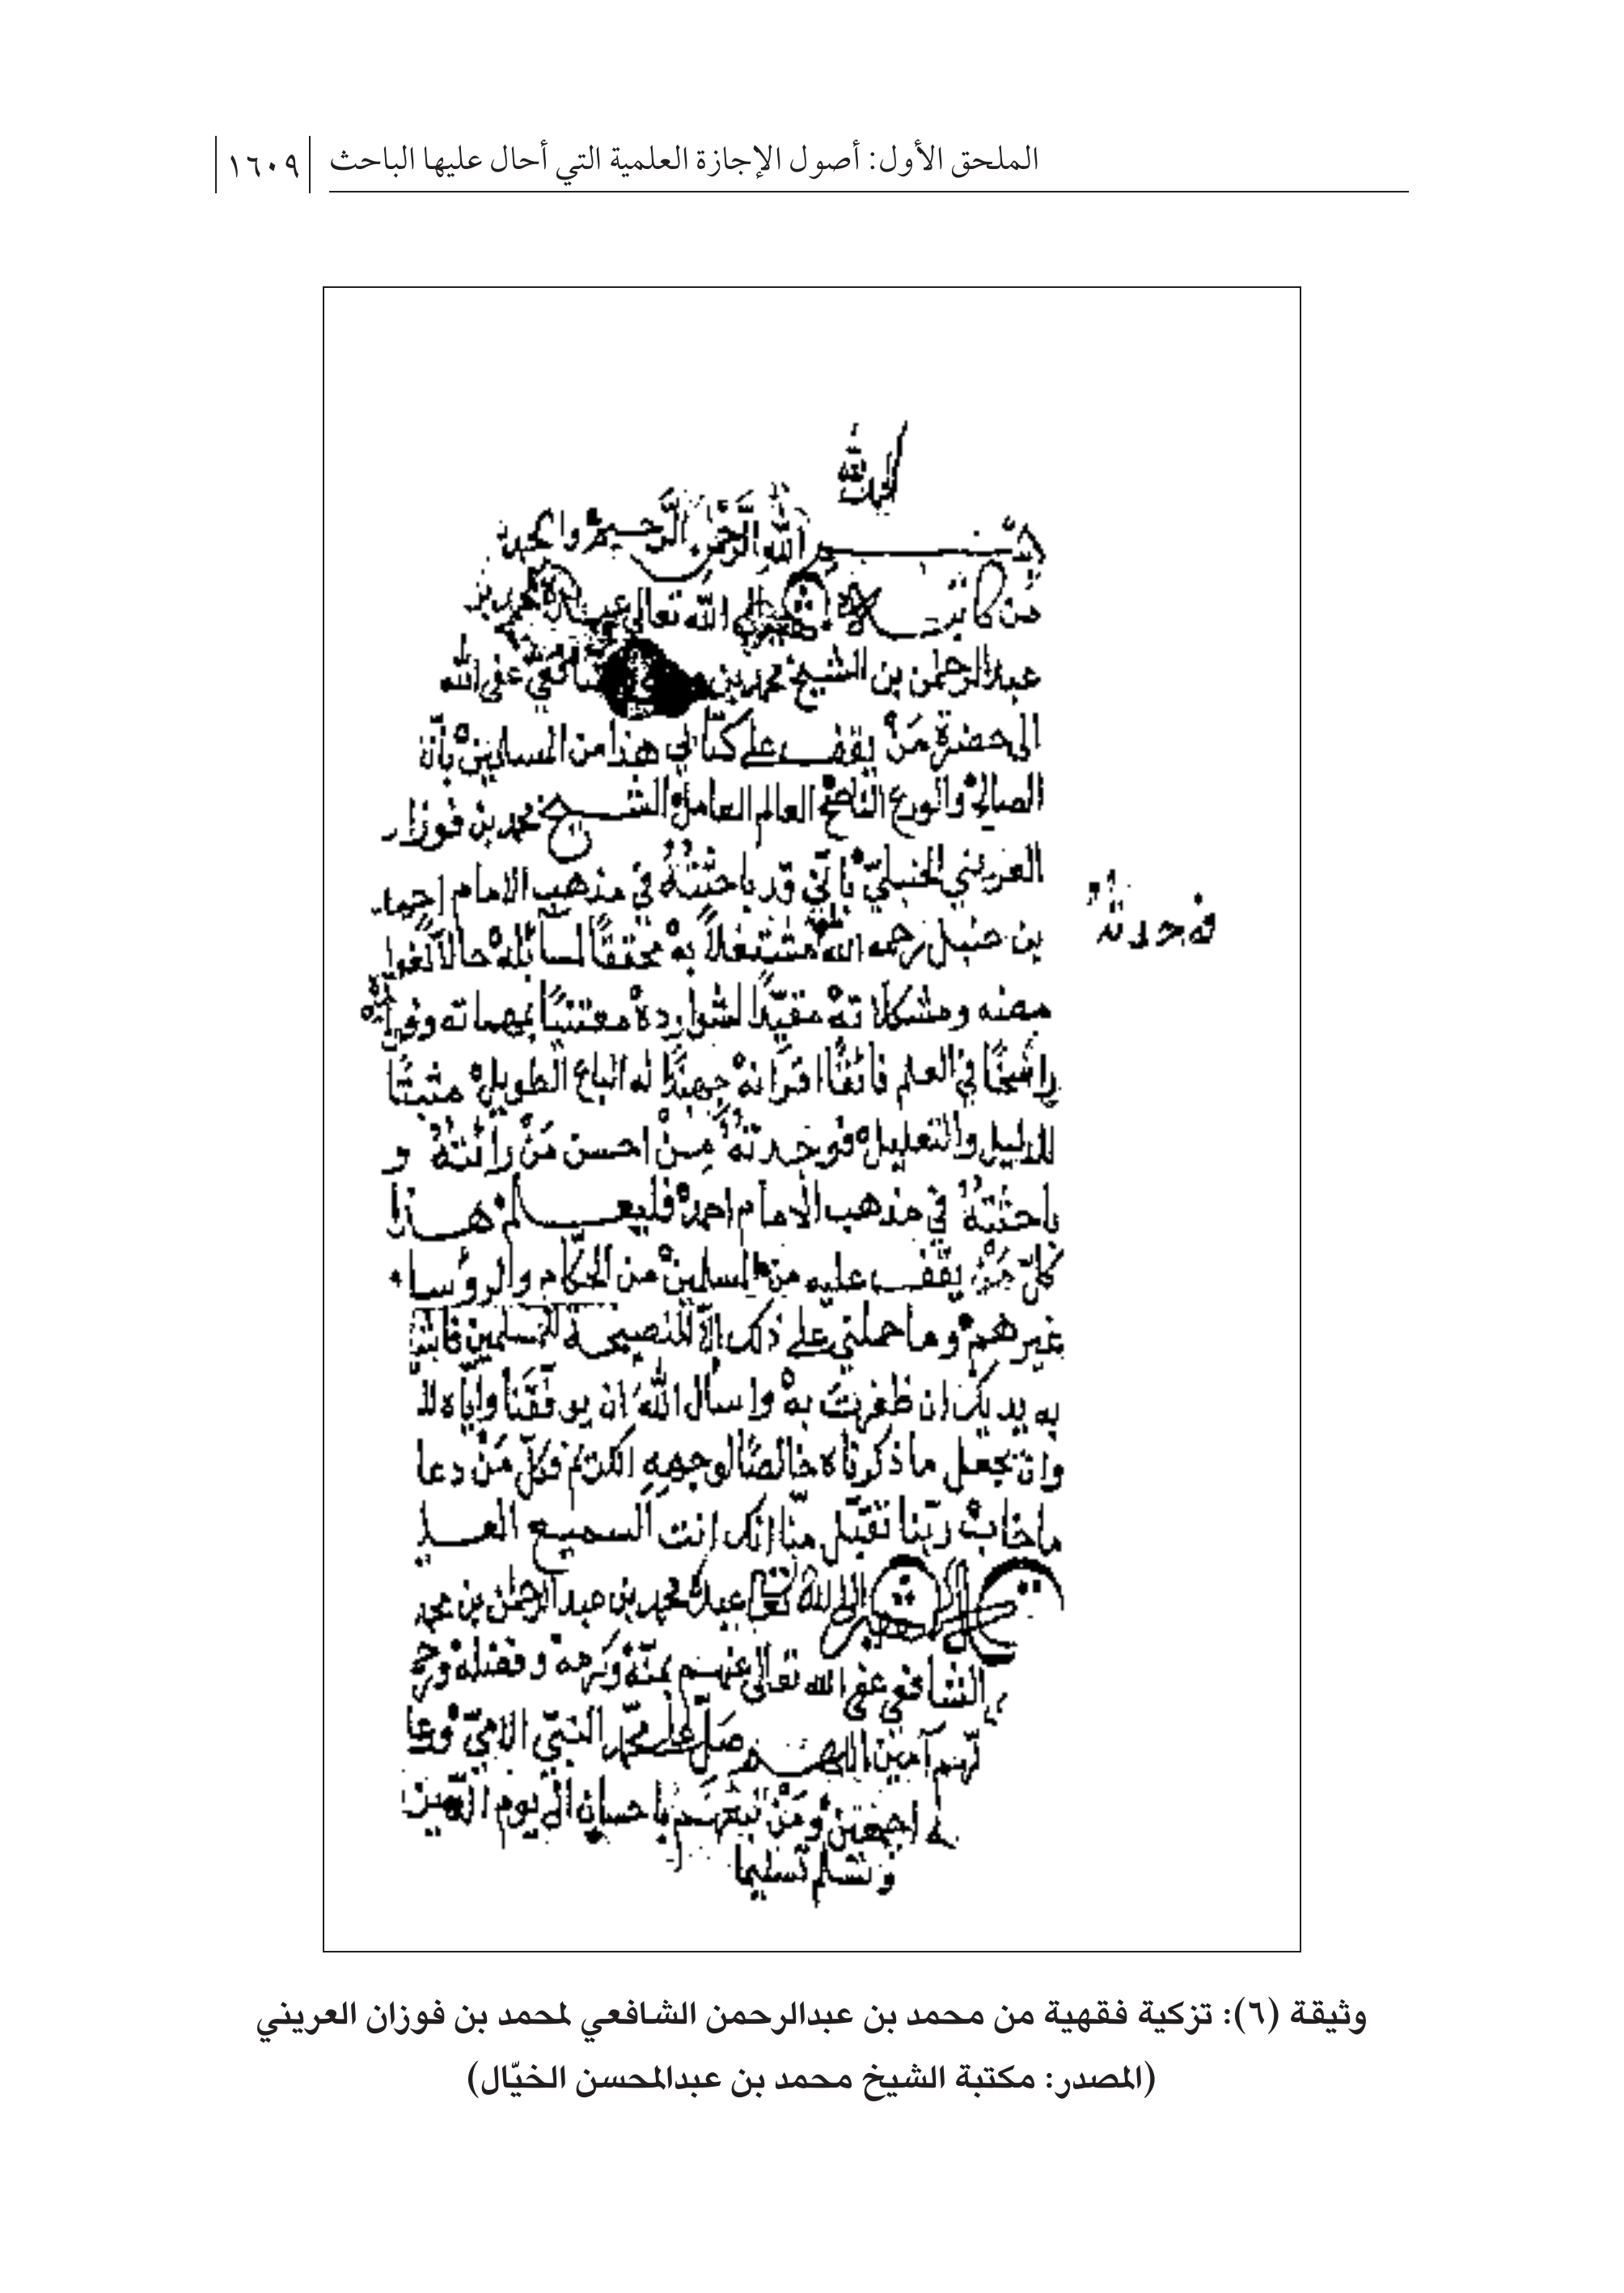 الملحق الأول: أصول الإجازة العلمية التي أحال عليها الباحث ١٦٠٩
الله الرحمن الرحيم
من كاتبه الله تعالى
عبد الرحمن بن الشيخ محمد بن عفى الله
الى حضرة مَنْ يقف على كتابي هذا من المسلمين بأنّ
الصالح والورع الناصح العالم العامل الشيخ محمد بن فوزان
العريني الحنبلي بأني قد باحثتهُ في مذهب الامام احمد
فوجدته
بن حنبل رحمه الله مشتغلاً به محققًا لمسائله حالاً
ومشكلاته مقيّدًا لشوارده معتنيًا بمهماته
راسخًا في العلم فائقًا اقرانه جهبذًا له الباع الطويل مثبتًا
للدليل والتعليل فوجدتهُ مِنْ احسن مَنْ رائتهُ و
باحثتهُ في مذهب الإمام احمد فليعلم هذا
كلّ مَنْ يقف عليه من المسلمين من الحكّام والرؤساء
غيرهم وما حملني على ذلك الاّ النصيحة
به يديك ان ظفرت به واسأل الله ان يوفقنا وايّاه
وان يجعل ما ذكرناه خالصًا لوجهه الكريم فكلّ مَنْ دعا
ما خاب ربّنا تقبّل منّا انك انت السميع العليم
الى الله تعالى عبده محمد بن عبد الرحمن بن محمد
الشافعي عفى الله تعالى عنهم بمنّه وكرمه وفضله
آمين اللهم صَلّ على محمّد النبيّ الاميّ وعلى
اجمعين ومَنْ تبعهم باحسان الى يوم الدين
وسلم تسليما
وثيقة (٦): تزكية فقهية من محمد بن عبدالرحمن الشافعي لمحمد بن فوزان العريني
(المصدر: مكتبة الشيخ محمد بن عبدالمحسن الخيّال)